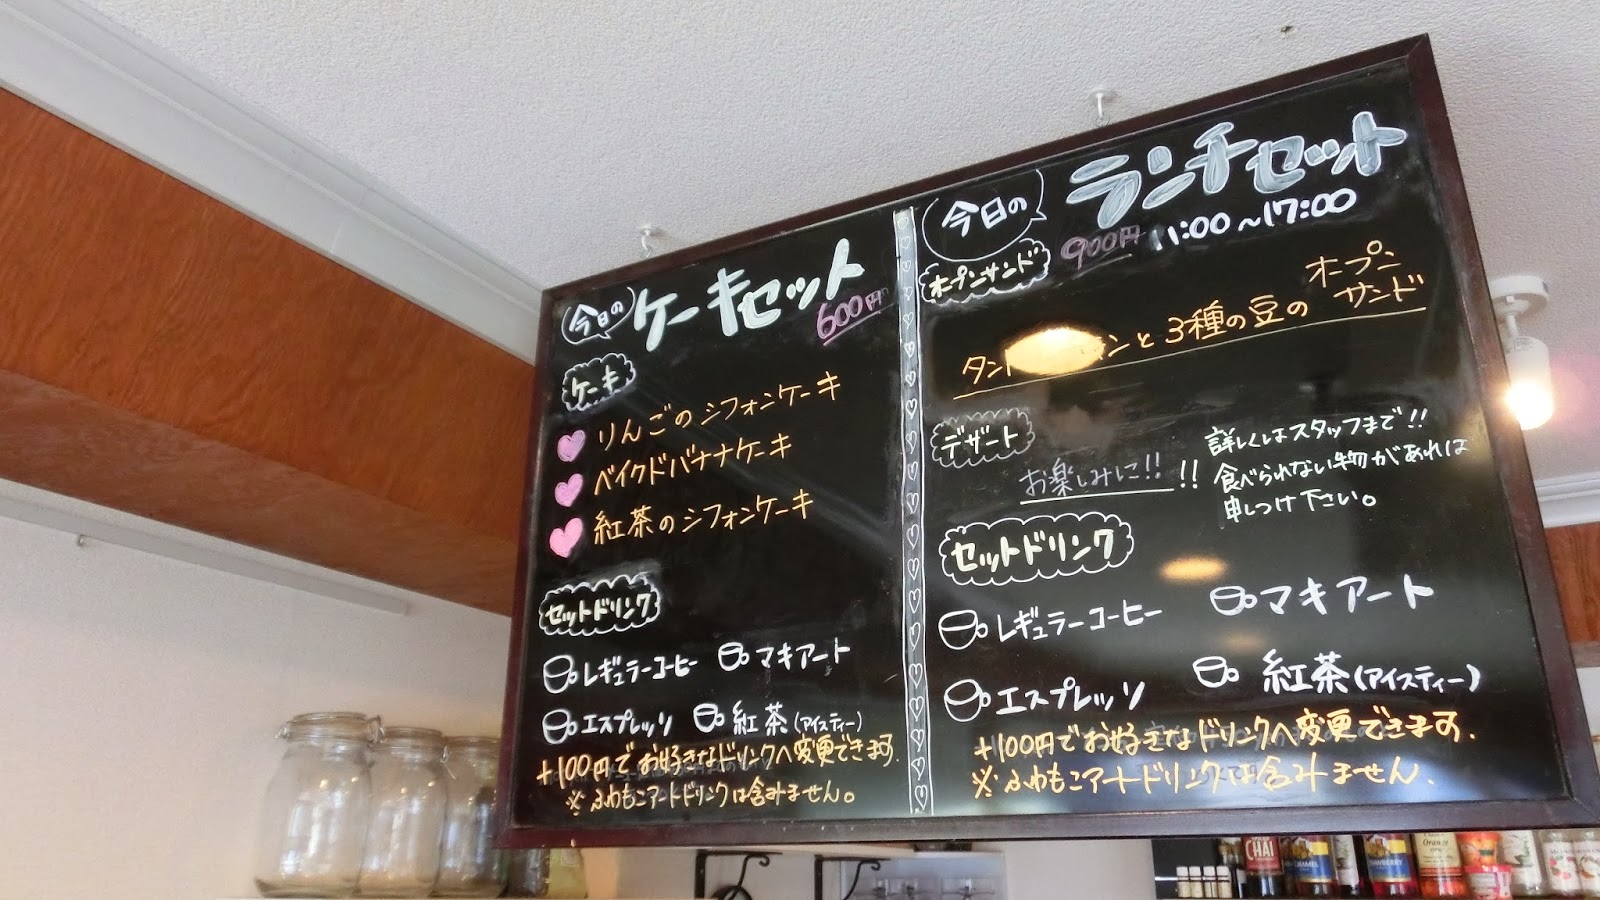 今日の
ケーキセット
600円
ケーキ
りんごのシフォンケーキ
ベイクドバナナケーキ
紅茶のシフォンケーキ
セットドリンク
レギュラーコーヒー マキアート
エスプレッソ 紅茶(アイスティー)
+100円でお好きなドリンクへ変更できます.
※ふわもこアートドリンクは含みません。
今日の
ランチセット
900円 11:00~17:00
オープンサンド
タン ンと3種の豆の
オープン
サンド
デザート
お楽しみに!! !!
詳しくはスタッフまで!!
食べられない物があれば
申しつけ下さい。
セットドリンク
レギュラーコーヒー マキアート
エスプレッソ 紅茶(アイスティー)
+100円でお好きなドリンクへ変更できます.
※ふわもこアートドリンクは含みません.
CHAI
CARAMEL
STRAWBERRY
Orange